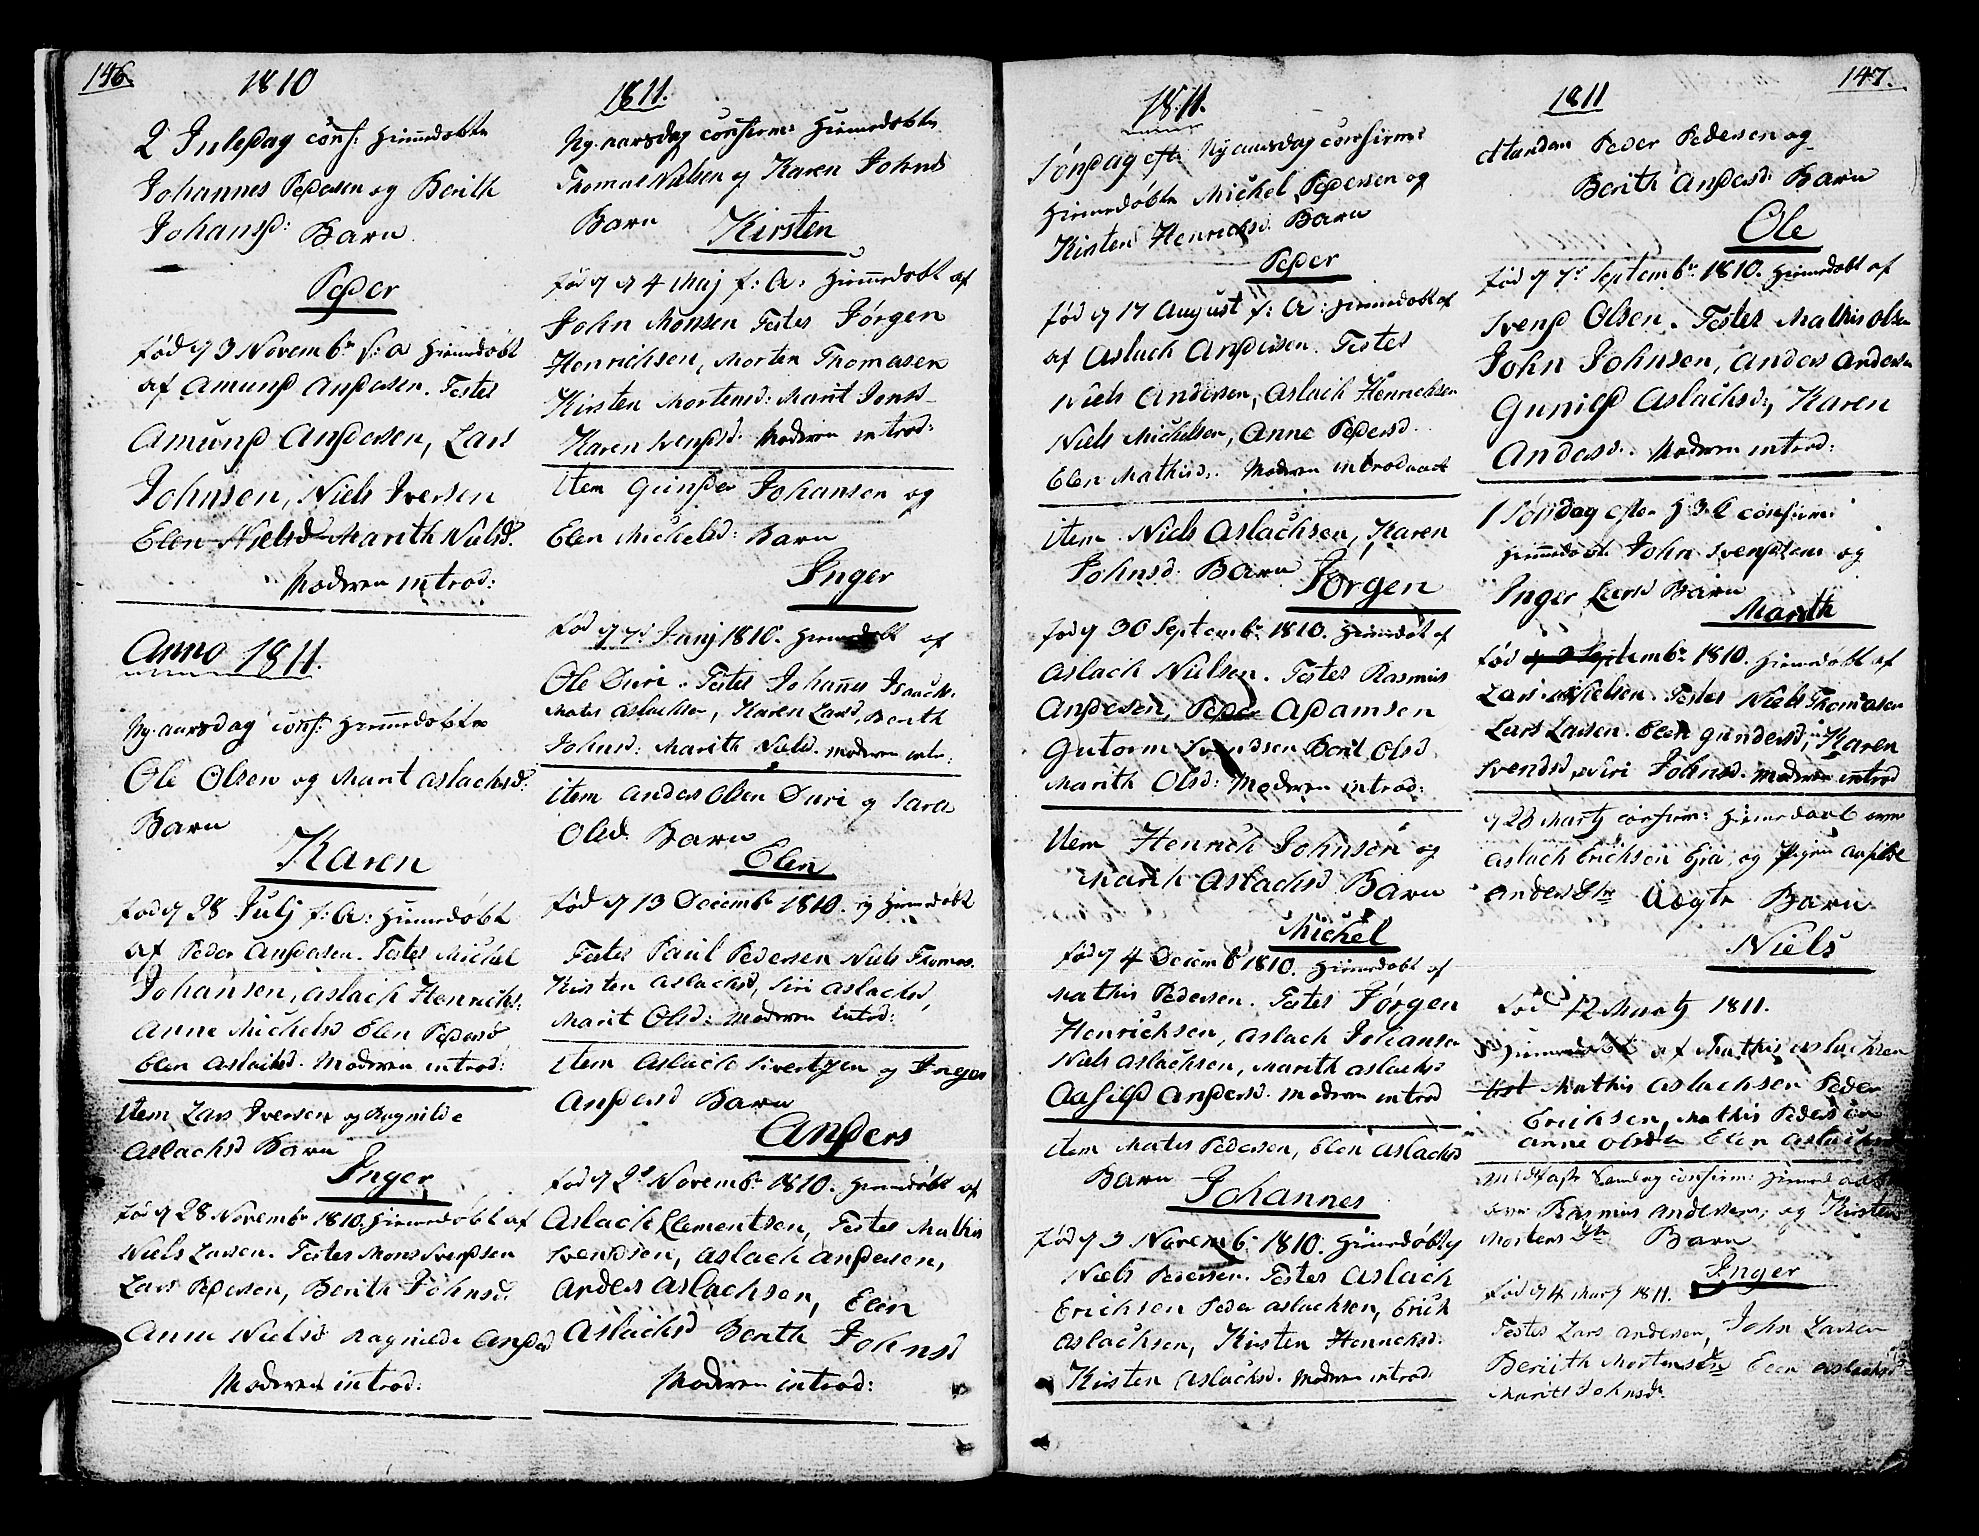 146.
1810
2 Juledag conf: Hiemedøbte
Johannes Pedersen og Berith
Johansd: Barn
Peder
fød d 3 Novembr f: a Hiemedøbt
af Amund Andersen. Testes
Amund Andersen, Lars
Johnsen, Niels Iversen
Elen Nielsd Marith Nielsd.
Moderen introd:
Anno 1811.
Ny-aarsdag conf: Hiemmedøbte
Ole Olsen og Marit Aslachsd:
Barn
Karen
fød d 28 Julj f: A: Hiemedøbt
af Peder Andersen. Testes Michel
Johansen, Aslach Henrichs:
Anne Michelsd Elen Pedersd
Elen Aslachsd. Moderen introd:
Item Lars Iversen og Ragnilde
Aslachsd Barn
Inger
fød d 28 Novembr 1810. Hiemedøbt af
Niels Larsen. Testes Mons Svendsen
Lars Pedersen, Berith Johnsd.
Anne Nielsd Ragnilde Andersd
Moderen introd:
1811.
Ny-aarsdag confirm: Hiemedøbte
Thomas Nielsen og Karen Johnsd
Barn
Kirsten
fød d 4 Maj f: A: Hiemedøbt af
John Monsen Testes Jørgen
Henrichsen, Morten Thomasen
Kirsten Mortensd: Marit Jonsd
Karen Svendsd. Moderen introd:
Item Gunder Johansen og
Elen Michelsd: Barn
Inger
fød d 7de Junj 1810. Hiemedøbt af
Ole Duri. Testes Johannes Isaachs.
Mates Aslachsen, Karen Larsd, Berith
Johnsd: Marith Nielsd. Moderen intr:
Item Anders Olsen Duri og Sara
Olsd. Barn
Elen
fød d 13 Decembr 1810. og Hiemedøbt
Testes Paul Pedersen Niels Thomas.
Kirsten Aslachsd, Siri Aslachsd,
Marit Olsd: Moderen introd:
Item Aslach Sivertsen og Inger
Andersd Barn
Anders
fød d 2d Novembr 1810. Hiemedøbt af
Aslach Clementsen, Testes Mathis
Svendsen, Aslach Andersen,
Anders Aslachsen, Elen
Aslachsd Berith Johnsd
Moderen introd:
1811.
Søndag eftr Nyaarsdag confirm:
Hiemedøbte Michel Pedersen og
Kirsten Henrichsd. Barn
Peder
fød d 17 August f: A: Hiemedøbt af
af Aslach Andersen. Testes
Niels Andersen, Aslach Henrichsen
Niels Michelsen, Anne Pedersd.
Elen Mathisd. Moderen introduct
Item Niels Aslachsen, Karen
Johnsd. Barn
Jørgen
fød d 30 Septembr 1810. Hiemedøbt af
Aslach Nielsen. Testes Rasmus
Andersen, Peder Adamsen
Gutorm Svendsen Berit Olsd
Marith Olsd: Moderen introd:
Item Henrich Johnsen og
Marith Aslachsd Barn
Michel
fød d 4 Decembr 1810. Hiemedøbt af
Mathis Pedersen. Testes Jørgen
Henrichsen, Aslach Johansen
Niels Aslachsen, Marith Aslachs:
Aasild Andersd. Moderen introd
Item Mates Pedersen, Elen Aslachsd
Barn
Johannes
fød d 3 Novembr 1810. Hiemedøbt af
Niels Pedersen. Testes Aslach
Erichsen Peder Aslachsen, Erich
Aslachsen, Kirsten Henrichsd.
Kirsten Aslachsd. Moderen introd.
147.
1811
Peder Pedersen og
Berith Andersd: Barn
Ole
fød d 7de Septembr 1810. Hiemedøbt af
Svend Olsen. Testes Mathis Olsen
John Johnsen, Anders Andersen
Gunild Aslachsd:, Karen
Andersd. Moderen introd:
1 Søndag efter H 3 K confirm:
Hiemedøbte John Svendsen og
Inger Larsd Barn
Marith
fød d 3 Septembr 1810. Hiemedøbt af
Lars Nielsen. Testes Niels Thomasen
Lars Larsen. Elen Gundersd, Karen
Svendsd, Siri Johnsd. Moderen introd
d 28 Martj confirm: Hiemedøbt
Aslach Erichsen Eira og Aasilde
Andersdtr Ægte Barn
Niels
fød 12 Martj 1811.
Hiemedøbt af Mathis Aslachsen
test Mathis Aslachsen Peder
Erichsen, Mathis Pedersen
Anne Olsdtr Elen Aslachsd
Midfaste Søndag confirm: Hiemedøbt
Rasmus Andersen, og Kirsten
Mortensdtr Barn
Inger
fød d 4 Martj 1811.
Testes Lars Andersen, John Larsen
Beriith Mortensdtr Elen Aslachsd
Marith Johnsdr